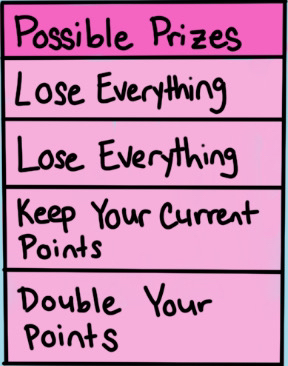 Possible Prizes
Lose Everything
Lose Everything
Keep Your Current
Points
Double Your
Points